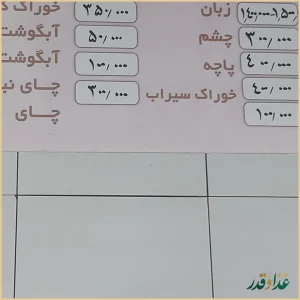 زبان ۱۴۰,۰۰۰-۱۵۰
چشم ۳۰۰,۰۰۰
پاچه ۴۰۰,۰۰۰
خوراک سیراب ۴۰۰,۰۰۰
۱۰۰,۰۰۰
خوراک ۳۵۰,۰۰۰
آبگوشت ۵۰,۰۰۰
آبگوشت ۱۰۰,۰۰۰
چای ۳۰۰,۰۰۰
چای
غذا و قدر